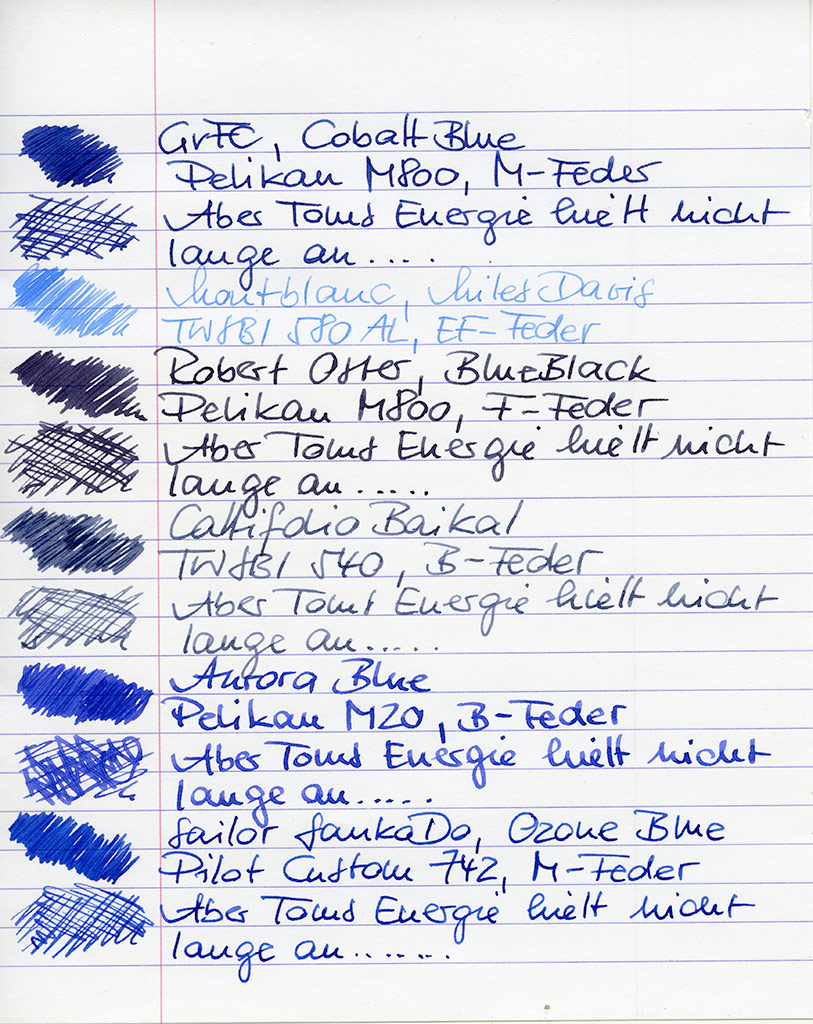 GvFC, Cobalt Blue
Pelikan M800, M-Feder
Aber Toms Energie hielt nicht
lange an.....
Montblanc, Miles Davis
TWSBI 580 AL, EF-Feder
Robert Oster, BlueBlack
Pelikan M800, F-Feder
Aber Toms Energie hielt nicht
lange an.....
Callifolio Baikal
TWSBI 540, B-Feder
Aber Toms Energie hielt nicht
lange an.....
Aurora Blue
Pelikan M20, B-Feder
Aber Toms Energie hielt nicht
lange an.....
Sailor SankaDo, Ozone Blue
Pilot Custom 742, M-Feder
Aber Toms Energie hielt nicht
lange an.......